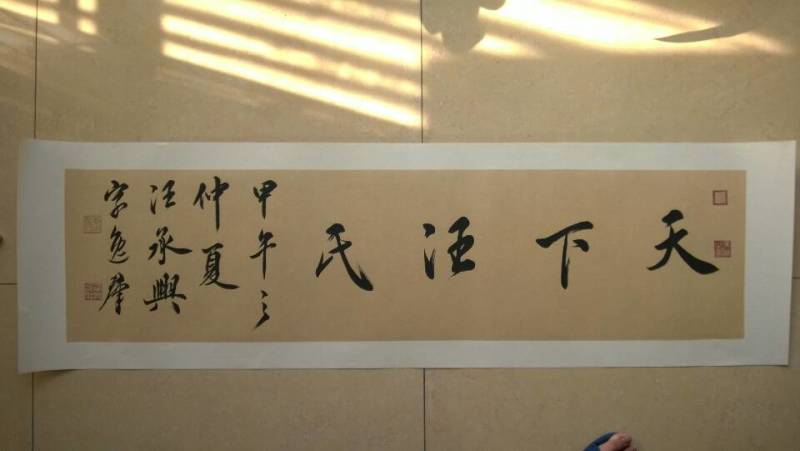 天下汪氏
甲午之
仲夏
汪承興
字逸